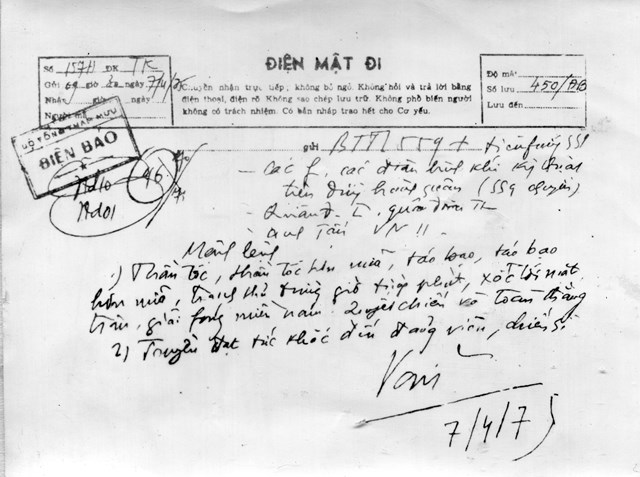 Số 157H ĐK TK
Gửi giờ ngày 7/4/75
Nhận giờ ngày
Người
ĐIỆN MẬT ĐI
Chuyển nhận trực tiếp; không bỏ ngỏ. Không hỏi và trả lời bằng
điện thoại, điện rõ. Không sao chép lưu trữ. Không phổ biến người
không có trách nhiệm. Có bản nháp trao hết cho Cơ yếu.
Độ mật
Số lưu 450/ĐB
Lưu đến
BỘ TỔNG THAM MƯU
ĐIỆN BÁO
gửi BTTL 559 +
- các f, các đơn binh khí kỹ thuật
- Quân đ. I, quân đoàn
Quang Tấn VN 11
Mệnh lệnh
1) Thần tốc, thần tốc hơn nữa, táo bạo, táo bạo
hơn nữa, tranh thủ từng giờ từng phút, xốc tới mặt
trận, giải fóng miền nam. Quyết chiến và toàn thắng
2) Truyền đạt tức khắc đến đảng viên, chiến sĩ
Văn
7/4/75